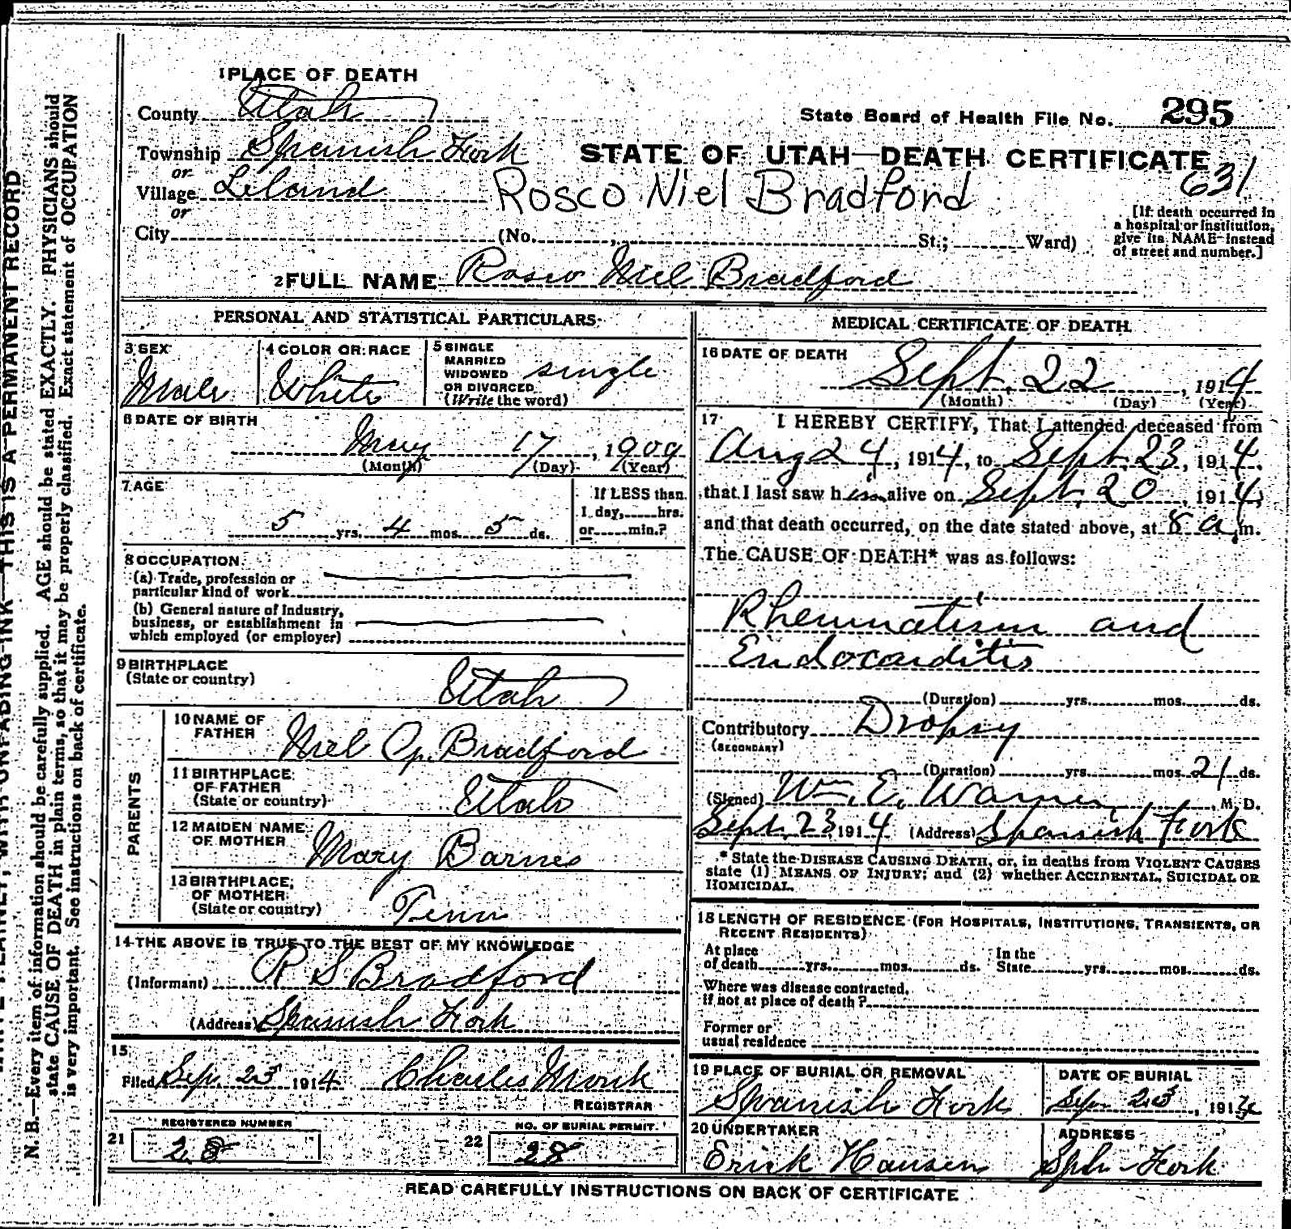 WRITE PLAINLY, WITH UNFADING INK—THIS IS A PERMANENT RECORD
N. B.—Every item of information should be carefully supplied. AGE should be stated EXACTLY. PHYSICIANS should
state CAUSE OF DEATH in plain terms, so that it may be properly classified. Exact statement of OCCUPATION
is very important. See instructions on back of certificate.
1 PLACE OF DEATH
County Utah
State Board of Health File No. 295
Township Spanish Fork
STATE OF UTAH—DEATH CERTIFICATE
631
or
Village Leland
Rosco Niel Bradford
or
City (No. , St.; Ward)
[If death occurred in
a hospital or institution,
give its NAME instead
of street and number.]
2 FULL NAME Rosco Niel Bradford
PERSONAL AND STATISTICAL PARTICULARS
3 SEX
Male
4 COLOR OR RACE
White
5 SINGLE
MARRIED
WIDOWED
OR DIVORCED
(Write the word)
single
6 DATE OF BIRTH
May 17, 1909
(Month) (Day) (Year)
7 AGE
5 yrs. 4 mos. 5 ds.
If LESS than
1 day, hrs.
or min.?
8 OCCUPATION
(a) Trade, profession or
particular kind of work
(b) General nature of Industry,
business, or establishment in
which employed (or employer)
9 BIRTHPLACE
(State or country)
Utah
PARENTS
10 NAME OF
FATHER
Niel G. Bradford
11 BIRTHPLACE
OF FATHER
(State or country)
Utah
12 MAIDEN NAME
OF MOTHER
Mary Barnes
13 BIRTHPLACE
OF MOTHER
(State or country)
Tenn
14 THE ABOVE IS TRUE TO THE BEST OF MY KNOWLEDGE
(Informant) R S Bradford
(Address) Spanish Fork
15
Filed Sep. 23 1914 Charles Monk
REGISTRAR
21 REGISTERED NUMBER
28
22 NO. OF BURIAL PERMIT
28
MEDICAL CERTIFICATE OF DEATH
16 DATE OF DEATH
Sept. 22, 1914
(Month) (Day) (Year)
17 I HEREBY CERTIFY, That I attended deceased from
Aug 24, 1914, to Sept. 23, 1914,
that I last saw him alive on Sept. 20, 1914,
and that death occurred, on the date stated above, at 8 a.m.
The CAUSE OF DEATH* was as follows:
Rheumatism and
Endocarditis
(Duration) yrs. mos. ds.
Contributory Dropsy
(SECONDARY)
(Duration) yrs. mos. 21 ds.
(Signed) Wm. E. Warner, M. D.
Sept. 23 1914 (Address) Spanish Fork
* State the DISEASE CAUSING DEATH, or, in deaths from VIOLENT CAUSES
state (1) MEANS OF INJURY; and (2) whether ACCIDENTAL, SUICIDAL OR
HOMICIDAL.
18 LENGTH OF RESIDENCE (FOR HOSPITALS, INSTITUTIONS, TRANSIENTS, OR
RECENT RESIDENTS)
At place
of death yrs. mos. ds.
In the
State yrs. mos. ds.
Where was disease contracted,
if not at place of death?
Former or
usual residence
19 PLACE OF BURIAL OR REMOVAL
Spanish Fork
DATE OF BURIAL
Sep. 23, 1914
20 UNDERTAKER
Erick Hansen
ADDRESS
Sph Fork
READ CAREFULLY INSTRUCTIONS ON BACK OF CERTIFICATE